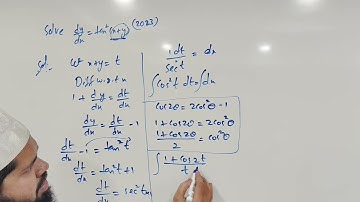 Solve dy/dx = tan²(x+y) (2023)
Sol. Let x+y = t
Diff w.r.t x
1 + dy/dx = dt/dx
dy/dx = dt/dx - 1
dt/dx - 1 = tan²t
dt/dx = tan²t + 1
dt/dx = sec²t
1dt/sec²t = dx
∫cos²t dt = ∫dx
cos2θ = 2cos²θ - 1
1 + cos2θ = 2cos²θ
1 + cos2θ / 2 = cos²θ
∫ 1 + cos2t / t